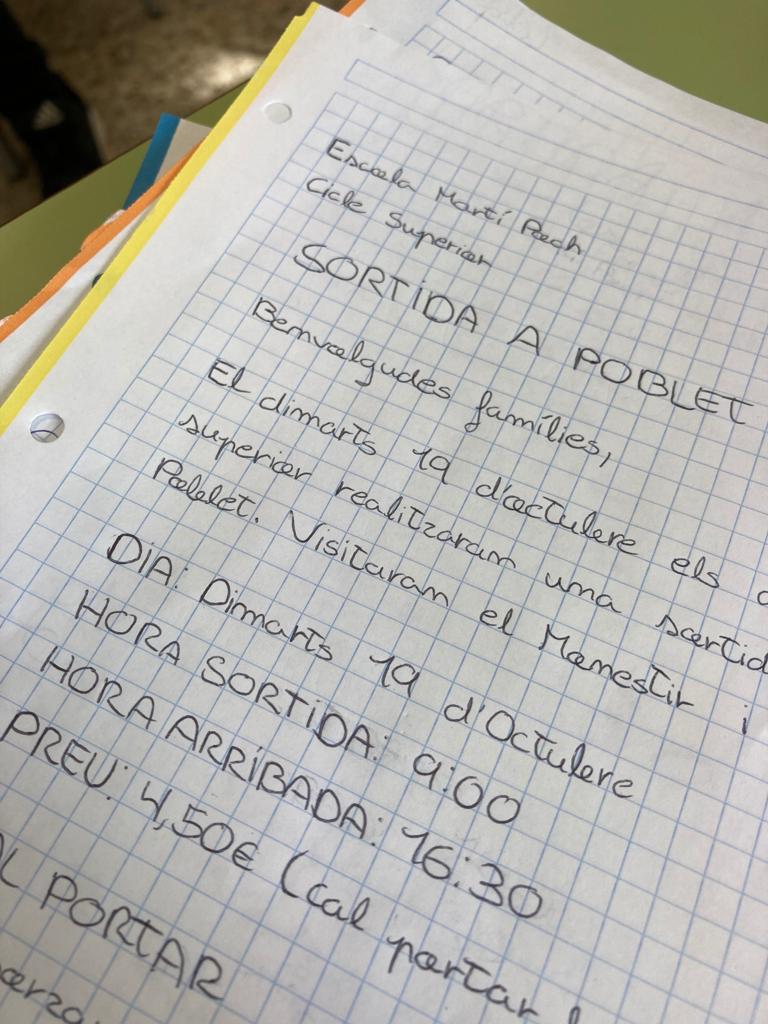 Escola Martí Poch
Cicle Superior
SORTIDA A POBLET
Benvolgudes famílies,
El dimarts 19 d'octubre els
superior realitzaran una sortida
Poblet. Visitaran el Monestir i
DIA: Dimarts 19 d'Octubre
HORA SORTIDA: 9:00
HORA ARRIBADA: 16:30
PREU: 4,50€ (cal portar
PORTAR